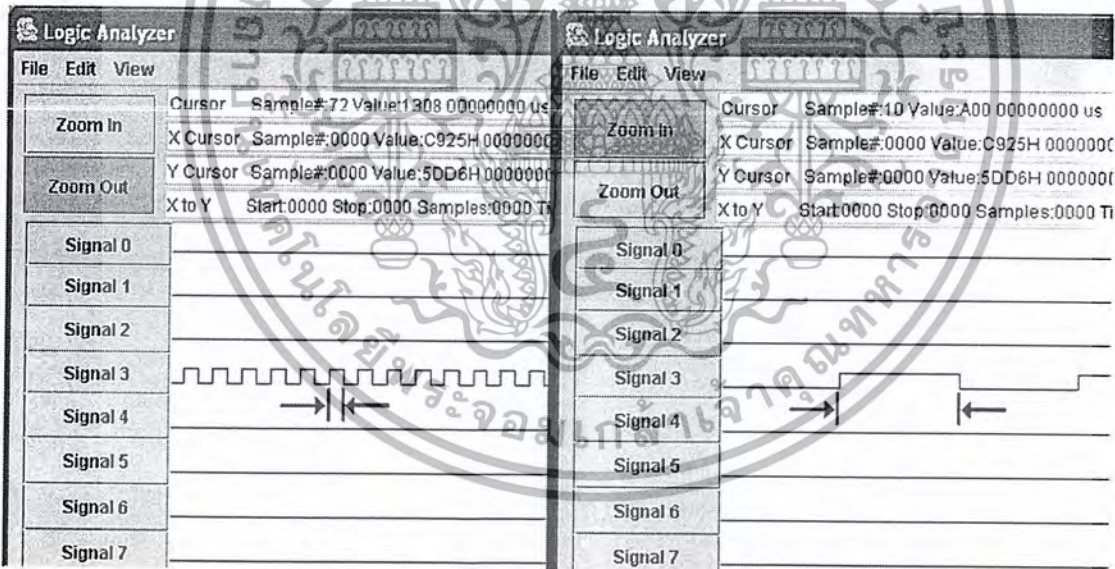 Logic Analyzer
File Edit View
Zoom In
Zoom Out
Cursor Sample#:72 Value:1308 00000000 us
X Cursor Sample#:0000 Value:C925H 0000000
Y Cursor Sample#:0000 Value:5DD6H 0000000
X to Y Start:0000 Stop:0000 Samples:0000
Signal 0
Signal 1
Signal 2
Signal 3
Signal 4
Signal 5
Signal 6
Signal 7
Logic Analyzer
File Edit View
Zoom In
Zoom Out
Cursor Sample#:10 Value:A00 00000000 us
X Cursor Sample#:0000 Value:C925H 0000000
Y Cursor Sample#:0000 Value:5DD6H 0000000
X to Y Start:0000 Stop:0000 Samples:0000 TI
Signal 0
Signal 1
Signal 2
Signal 3
Signal 4
Signal 5
Signal 6
Signal 7